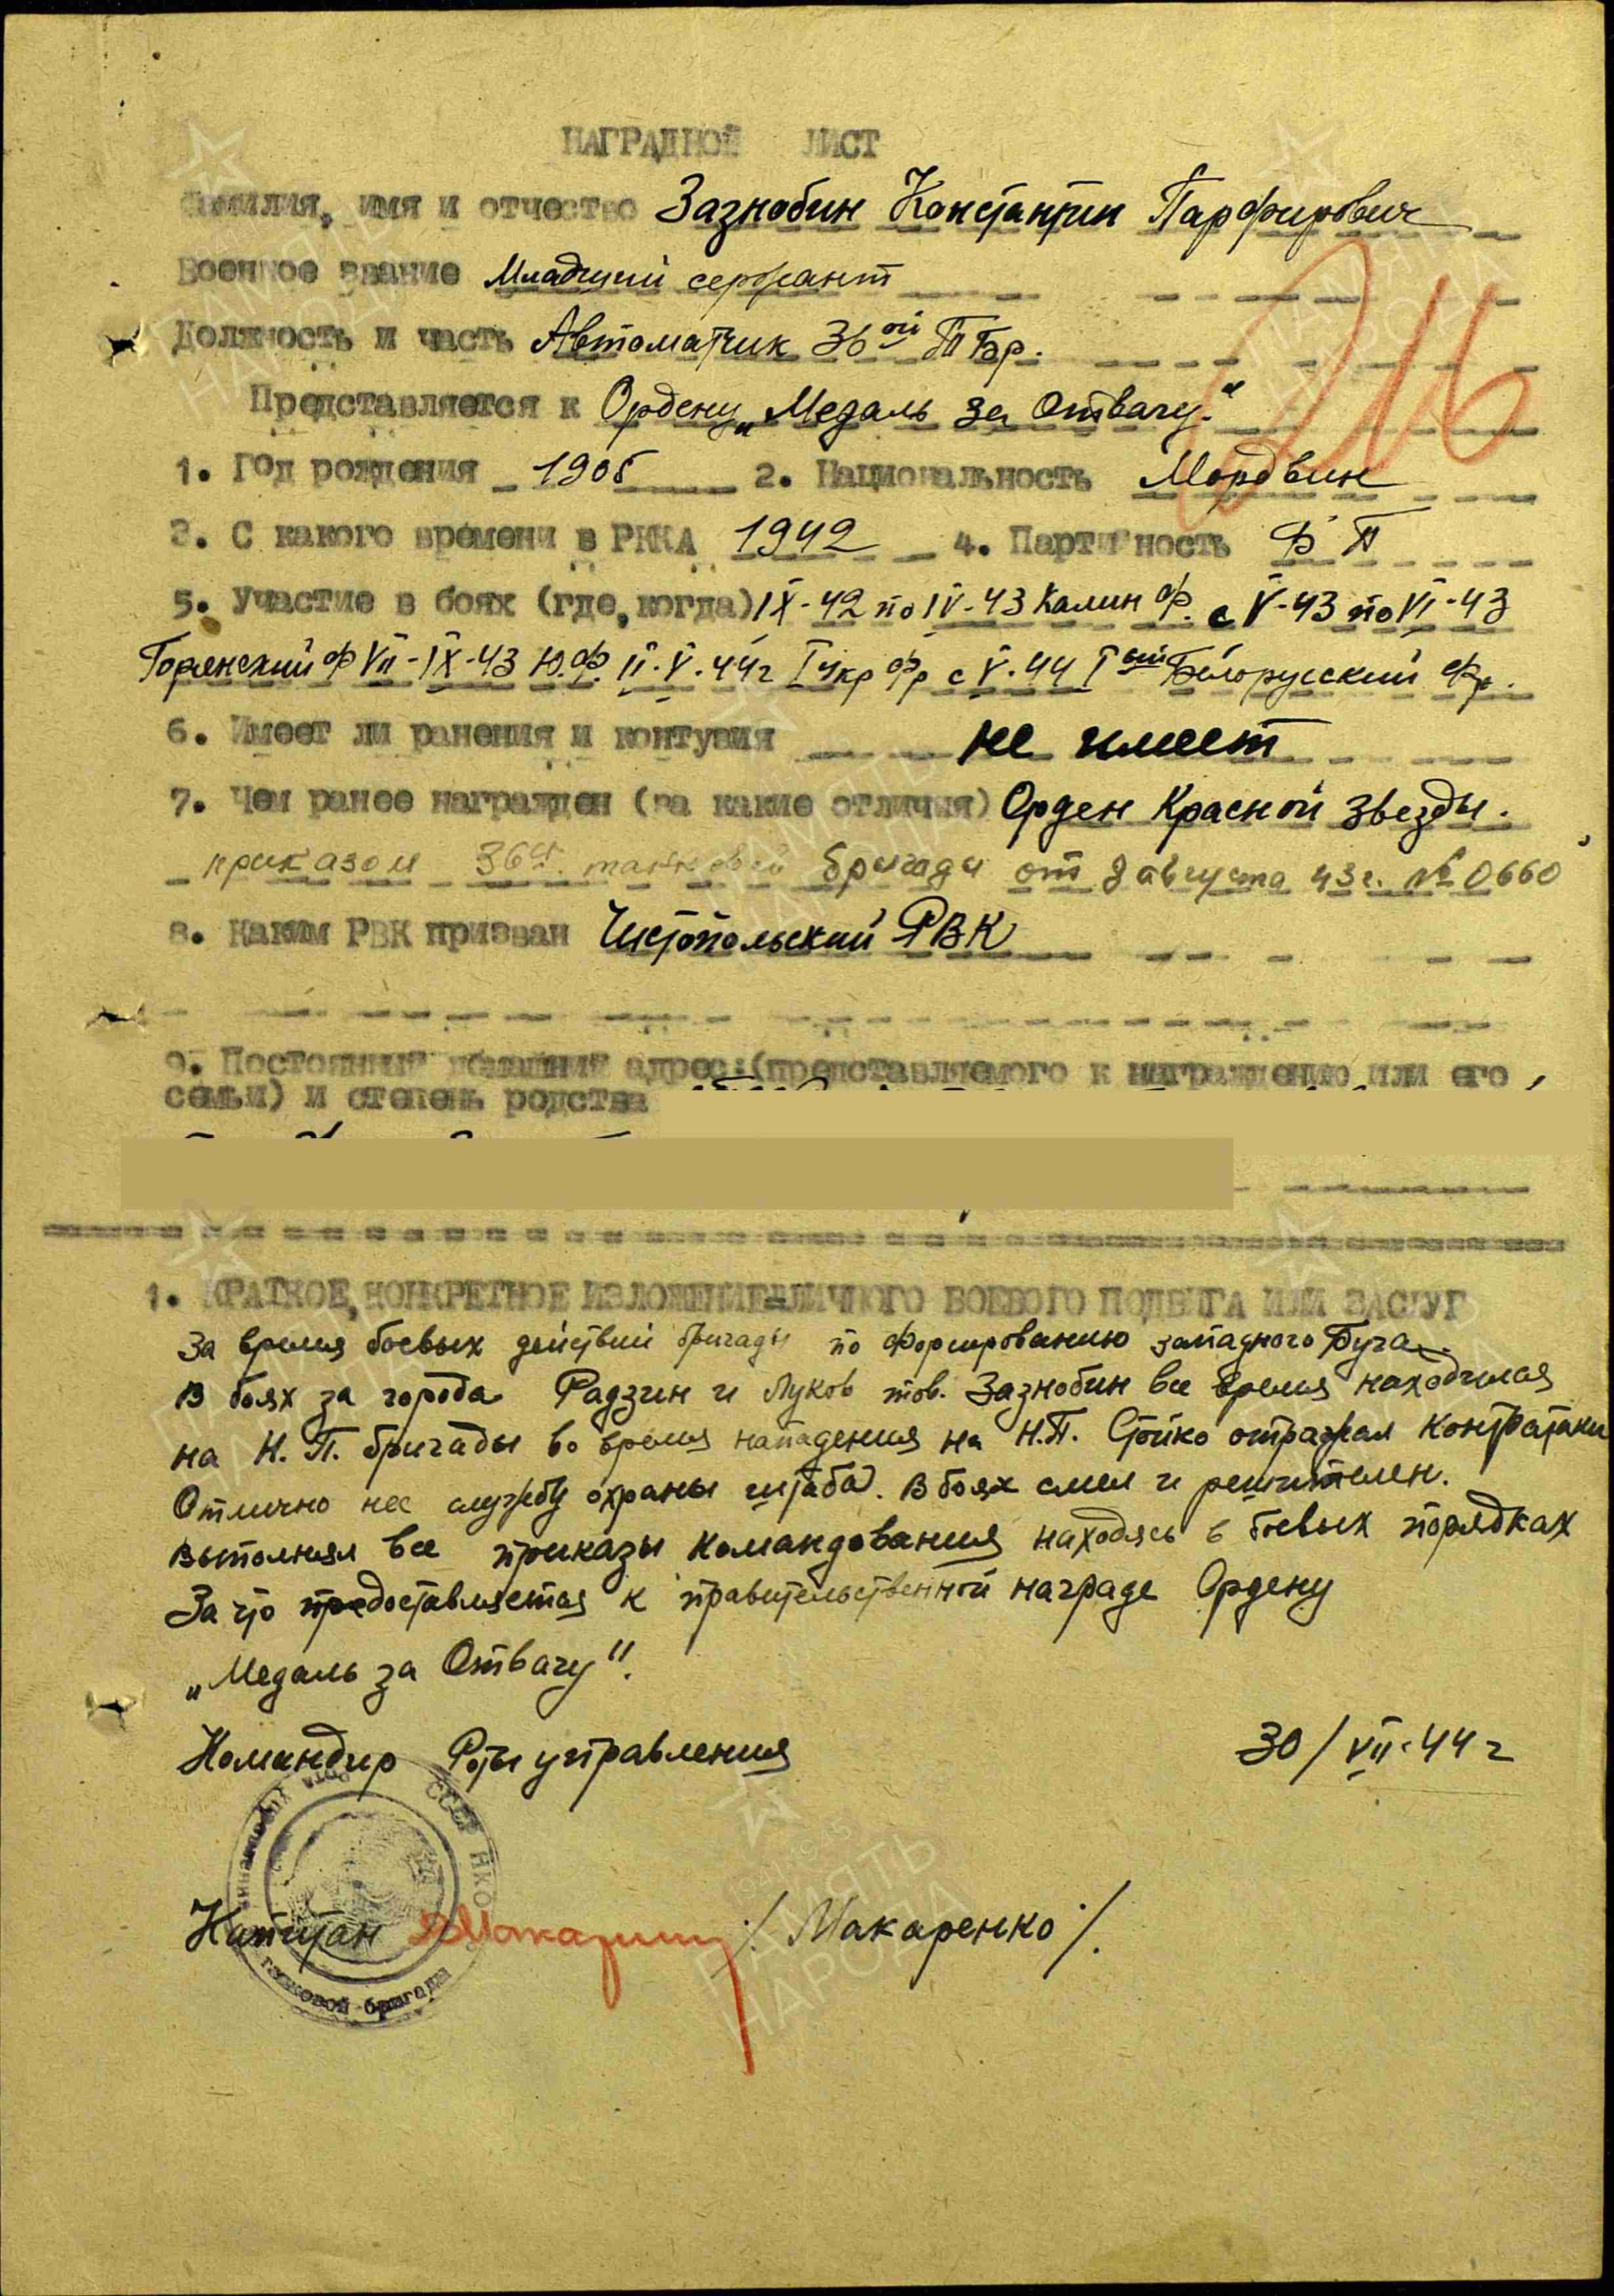 НАГРАДНОЙ ЛИСТ
Фамилия, имя и отчество Зазнобин Константин Парфирович
Военное звание Младший сержант
Должность и часть Автоматчик 36ой ТБр.
Представляется к Ордену „Медаль за Отвагу."
1. Год рождения 1905 2. Национальность Мордвин
3. С какого времени в РККА 1942 4. Партийность Б П
5. Участие в боях (где, когда) IX-42 по IV-43 Калин Ф. с V-43 по VI-43
Ф VII-IX-43 Ю.Ф. II-V-44г I Укр Фр с V-44 I ый Белорусский Фр.
6. Имеет ли ранения и контузия не имеет
7. Чем ранее награжден (за какие отличия) Орден Красной Звезды.
приказом 36й танковой бригады от 8 августа 43г. № 0660
8. Каким РВК призван Чистопольский РВК
9. Постоянный домашний адрес: (представляемого к награждению или его
семьи) и степень родства
1. КРАТКОЕ, КОНКРЕТНОЕ ИЗЛОЖЕНИЕ ЛИЧНОГО БОЕВОГО ПОДВИГА ИЛИ ЗАСЛУГ
За время боевых действий бригады по форсированию западного Буга.
В боях за города Радзин и Луков тов. Зазнобин все время находился
на Н.П. бригады во время нападения на Н.П. Стойко отражал контратаки
Отлично нес службу охраны штаба. В боях смел и решителен.
Выполнял все приказы командования находясь в боевых порядках
За что предоставляется к правительственной награде Ордену
„Медаль за Отвагу".
Командир Роты управления 30/VII-44 г
Капитан /Макаренко/.
СССР НКО
танковой бригады
ПАМЯТЬ НАРОДА